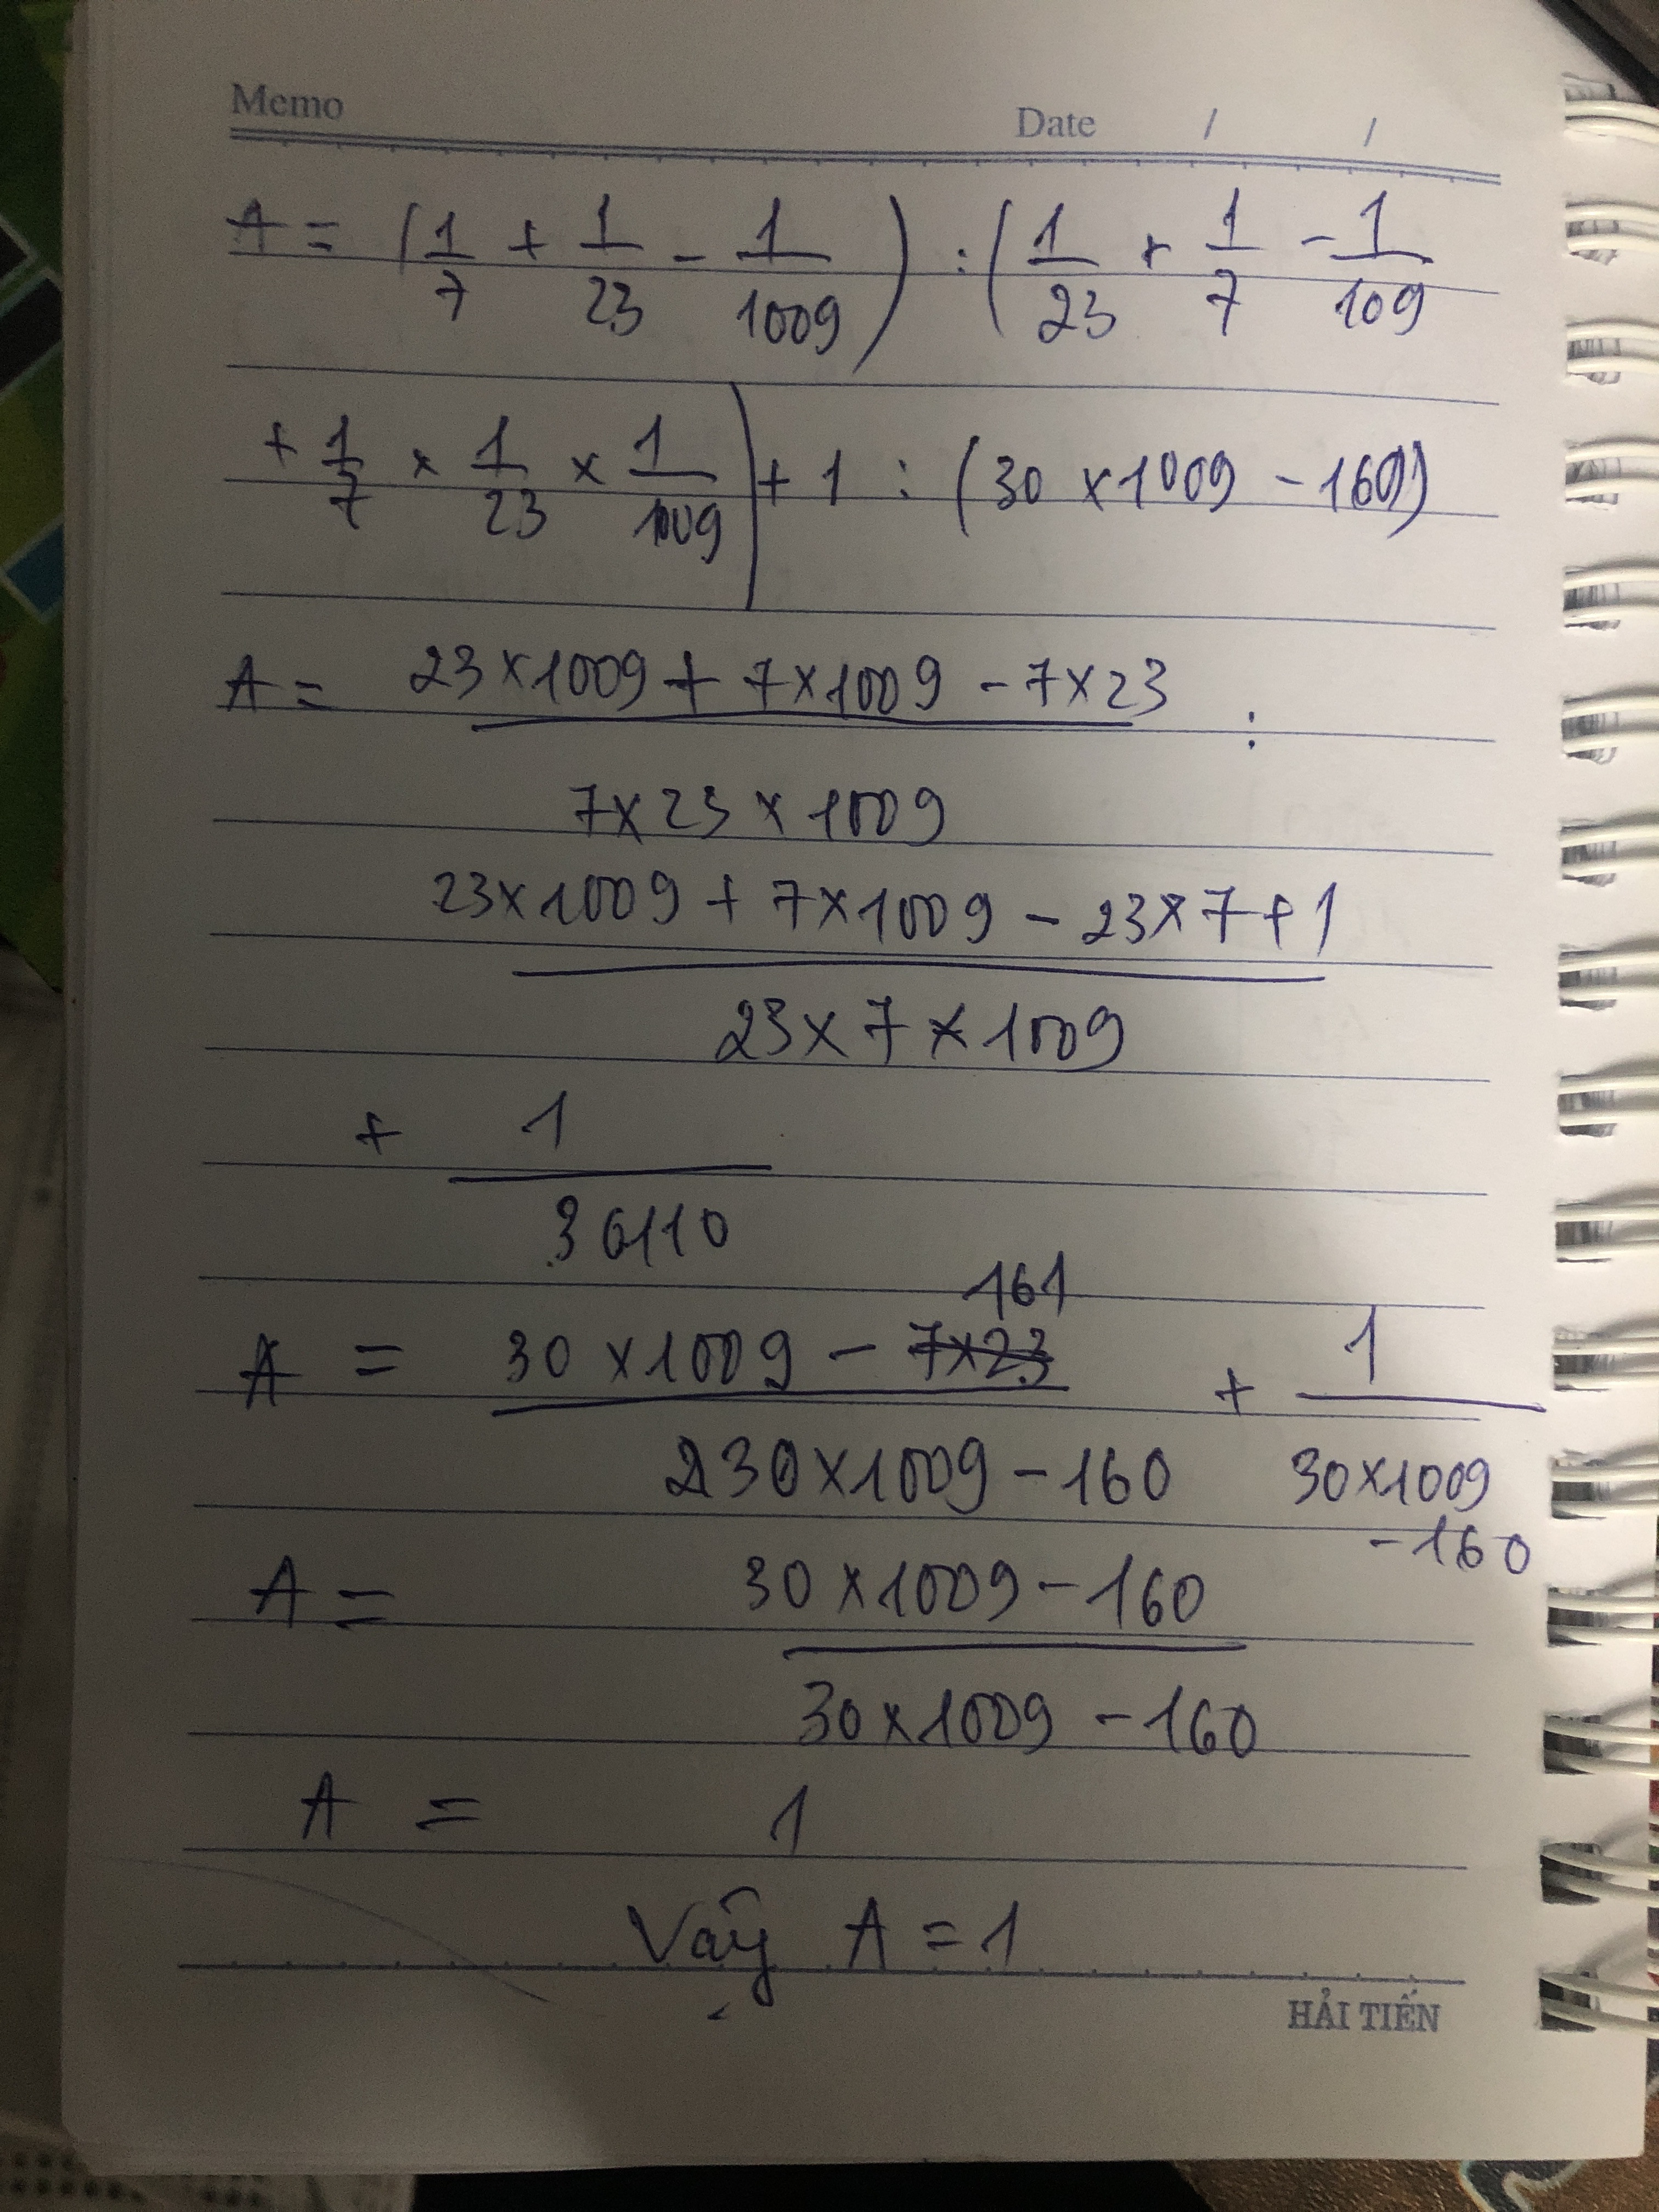 Memo Date / /
A = (1/7 + 1/23 - 1/1009) : (1/23 + 1/7 - 1/109
+ 1/7 × 1/23 × 1/1009) + 1 : (30 × 1009 - 160)
A = 23×1009 + 7×1009 - 7×23 :
7×23×1009
23×1009 + 7×1009 - 23×7+1
23×7×1009
+ 1
30110
161
A = 30×1009 - 7×23 + 1
30×1009-160 30×1009
-160
A = 30×1009-160
30×1009-160
A = 1
Vậy A = 1
HẢI TIẾN